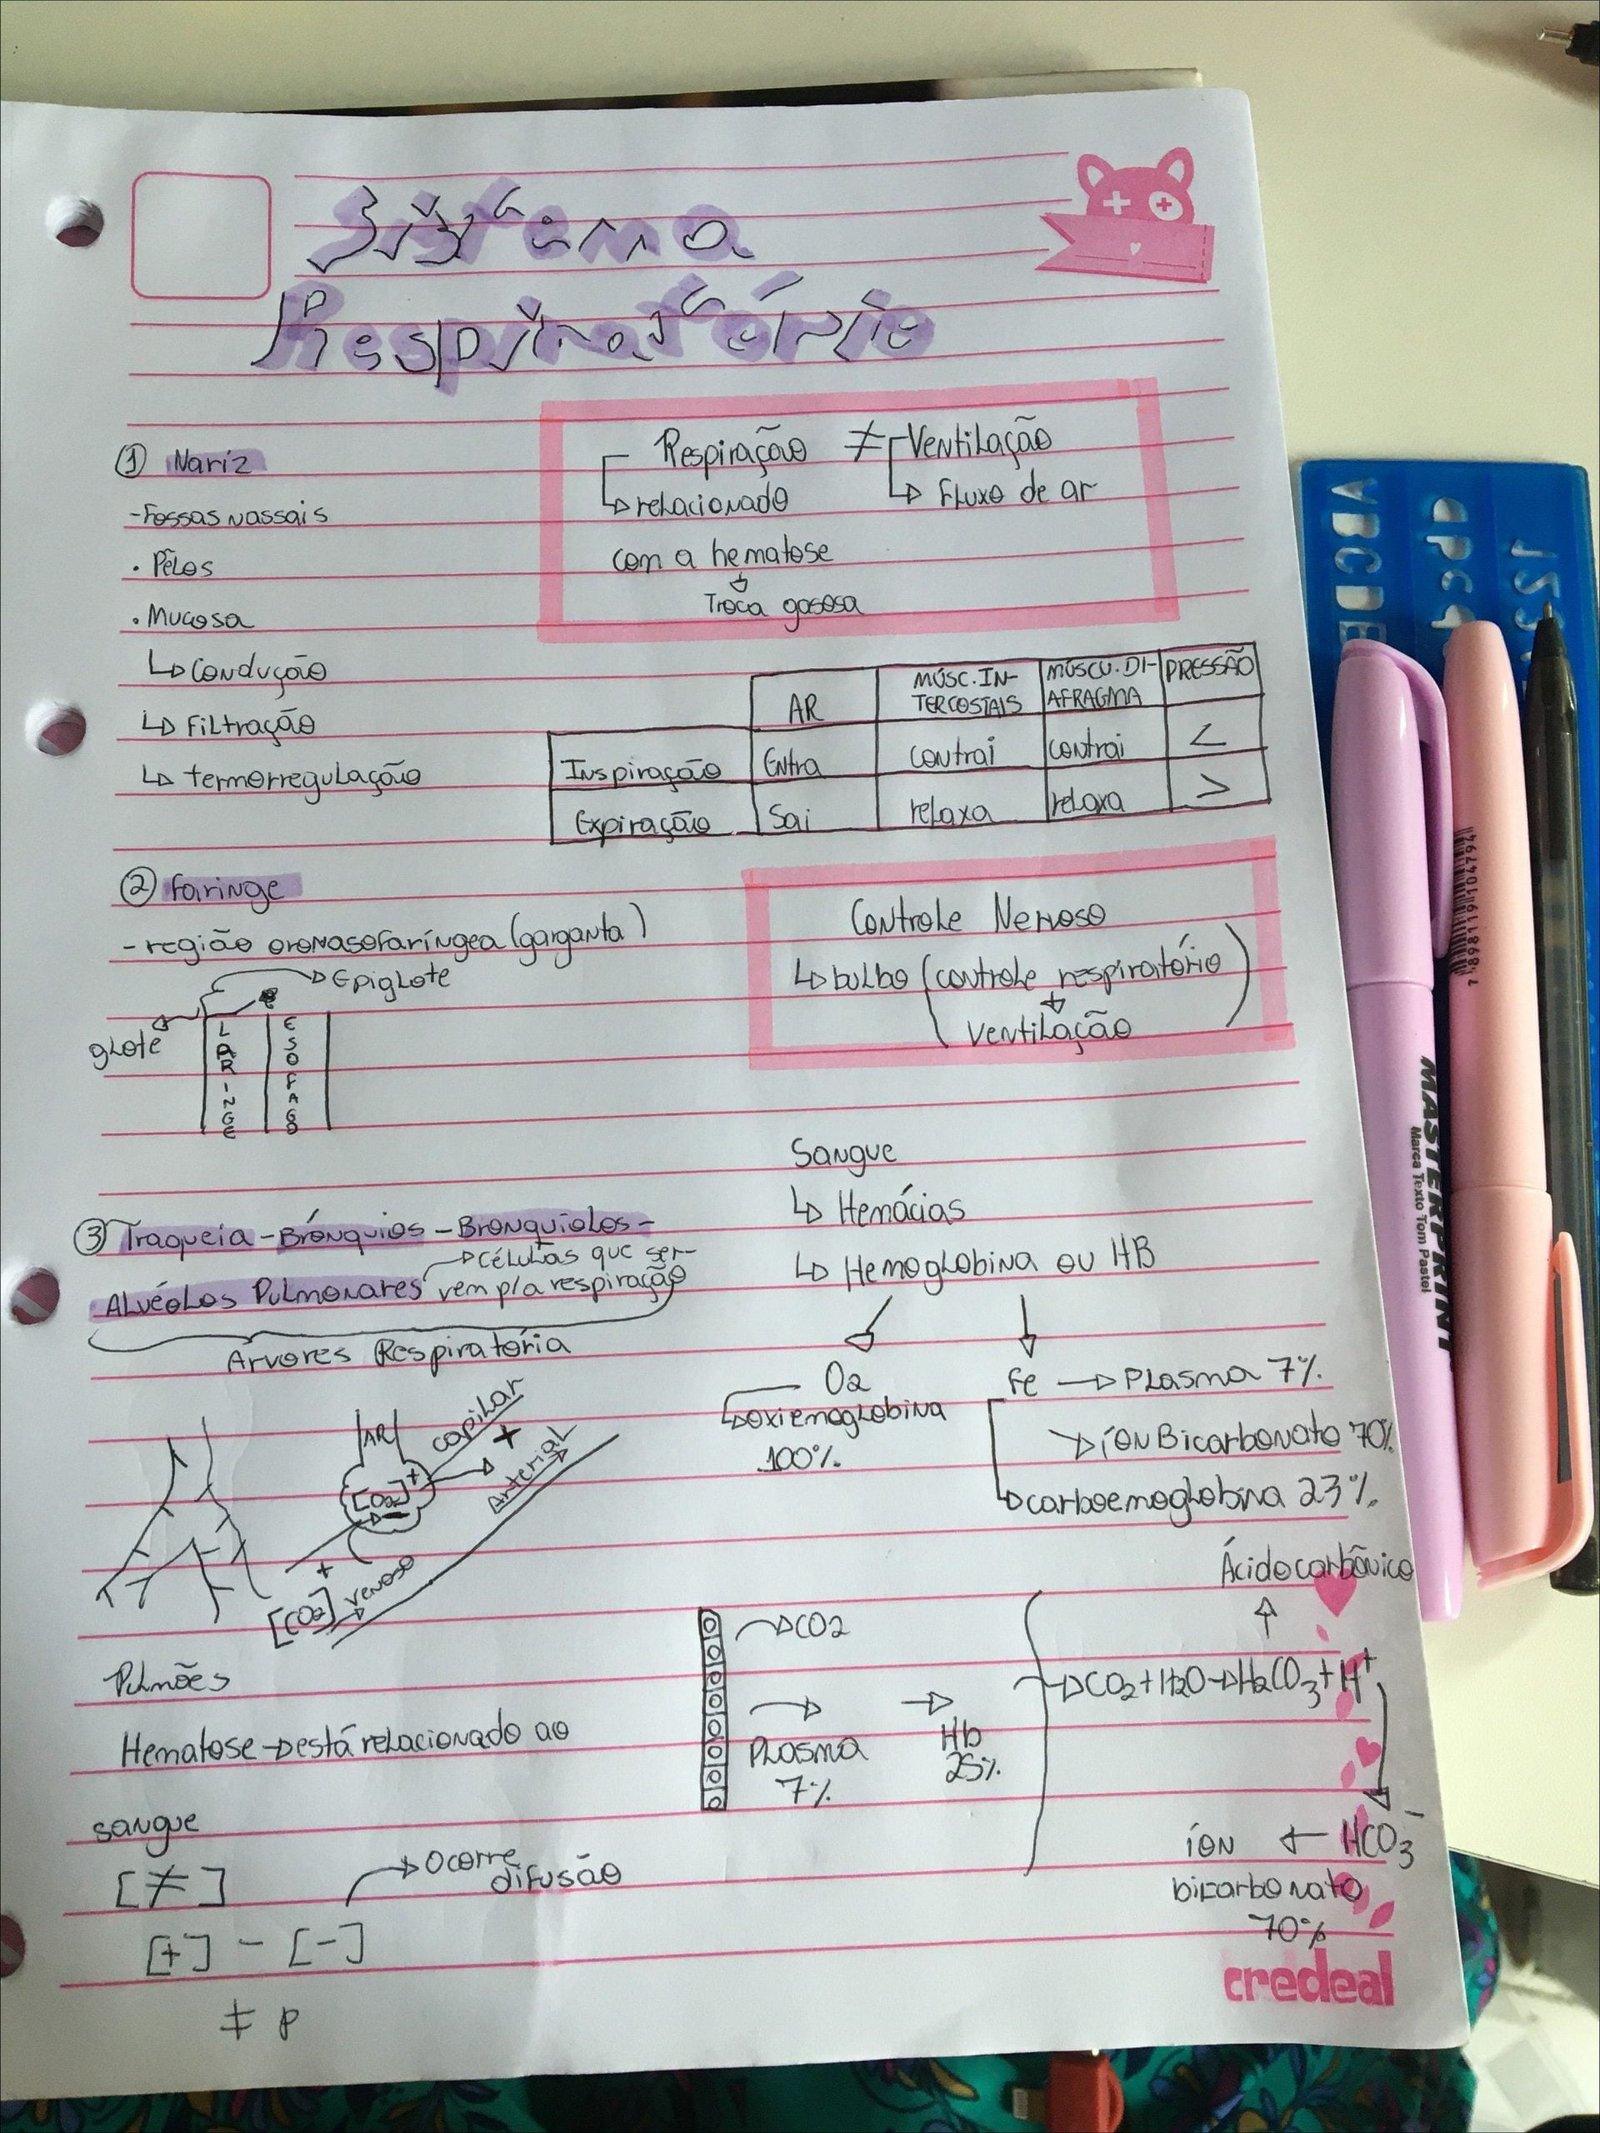 Sistema
Respiratório
① Nariz
-Fossas nassais
• Pêlos
• Mucosa
↳ Condução
↳ Filtração
↳ termorregulação
Respiração ≠ Ventilação
↳ relacionado
↳ Fluxo de ar
com a hematose
↓
Troca gasosa
AR
MÚSC. IN-
TERCOSTAIS
MÚSCU. DI-
AFRAGMA
PRESSÃO
Inspiração Entra contrai contrai <
Expiração Sai relaxa relaxa >
② Faringe
- região oronasofaríngea (garganta)
→ Epiglote
glote
LARINGE
ESOFAGO
Controle Nervoso
↳ bulbo (controle respiratório
↓
ventilação)
③ Traqueia - Brônquios - Bronquíolos -
Alvéolos Pulmonares → Células que ser-
vem p/a respiração
Arvores Respiratória
AR
capilar
+
Arterial
[O2]+
-
+
[CO2]
venoso
Sangue
↳ Hemácias
↳ Hemoglobina ou HB
O2
↳ oxiemoglobina
100%
Fe → Plasma 7%
→ íon Bicarbonato 70%
↳ carboemoglobina 23%
Pulmões
Hematose → está relacionado ao
sangue
[≠]
[+] - [-]
→ Ocorre
difusão
≠ P
→ CO2
→
Plasma
7%
→
Hb
25%
Ácido carbônico
↑
→ CO2 + H2O → H2CO3 + H+
íon ← HCO3-
bicarbonato
70%
credeal
ABCDE
MASTERPRINT
Marca Texto Tom Pastel
7 898119 104794